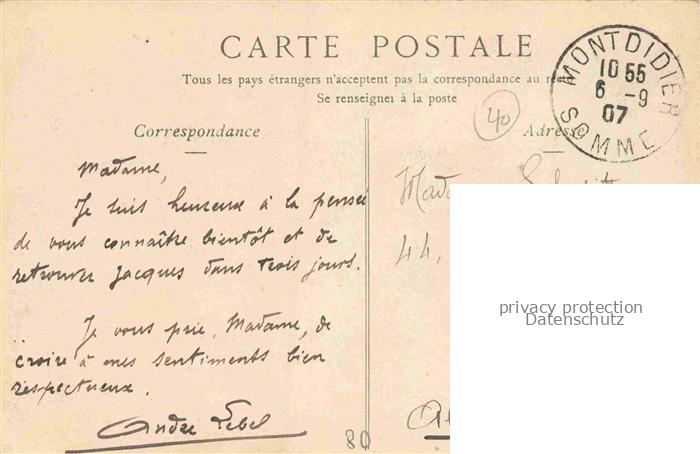 CARTE POSTALE
Tous les pays étrangers n'acceptent pas la correspondance au recto
Se renseigner à la poste
MONTDIDIER
10 55
6 -9
07
SOMME
40
Correspondance
Adresse
Madame,
Je suis heureuse à la pensée
de vous connaître bientôt et de
retrouver Jacques dans trois jours.
Je vous prie, Madame, de
croire à mes sentiments bien
respectueux.
André Lebel
80
44,
privacy protection
Datenschutz